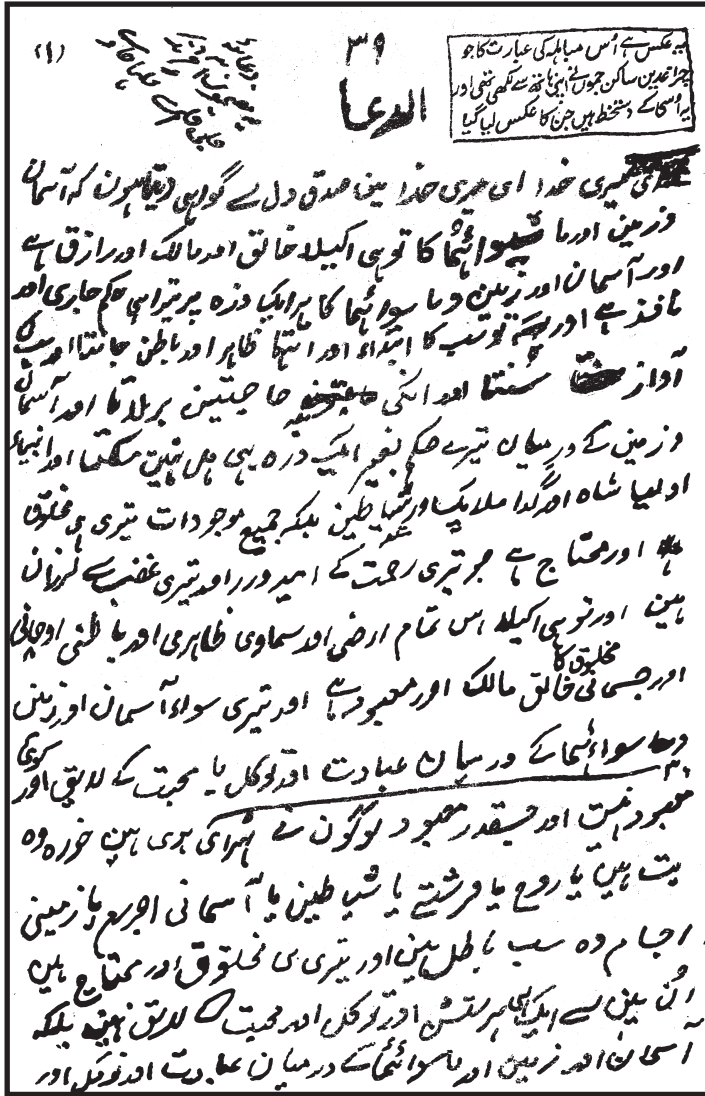 (۱)
۳۹
الدعا
یہ عکس ہے اُس مباہلہ کی عبارت کا جو
چراغدین ساکن جموں نے اپنی ہاتھ سے لکھی تھی اور
یہ اُسکا کے دستخط ہیں جن کا عکس لیا گیا
ای میری خدا ای میری خدا مین صدق دل سے گواہی دیتا ہون کہ آسمان
و زمین اور ما سوائہما کا تو ہی اکیلا خالق اور مالک اور رازق ہے
اور آسمان اور زمین وما سوائہما کا ہر ایک ذرہ پر تیرا ہی حکم جاری اور
نافذ ہے اور تو سب کا ابتداء اور انتہا ظاہر اور باطن جانتا اور سب کی
آواز سُنتا اور انکی حاجتین بر لاتا اور آسمان
و زمین کے درمیان تیرے حکم بغیر ایک ذرہ بھی ہل نہین سکتا اور انبیاء
اولیا شاہ اور گدا ملایک اور شیاطین بلکہ جمیع موجودات تیری ہی مخلوق
اور محتاج ہے جو تیری رحمت کے امیدوار اور تیری غضب سے لرزان
ہین اور تو ہی اکیلا اس تمام ارضی اور سماوی ظاہرمی اور باطنی روحانی
اور جسمانی مخلوق کا خالق مالک اور معبود ہے اور تیری سواء آسمان اور زمین
وما سواءہما کے درمیان عبادت اور توکل یا محبت کے لایق اور کوئی
معبود نیست اور جسقدر معبود لوگون نے ٹہرای ہوی ہین خواہ وہ
بت ہین یا روح یا فرشتے یا شیاطین یا آسمانی اجرام یا زمینی
اجسام وہ سب باطل ہین اور تیری ہی مخلوق اور محتاج ہین
اُن مین سے ایک بھی پرستش اور توکل اور محبت کے لایق نہین بلکہ
آسمان اور زمین اور ما سوائہما کے درمیان عبادت اور توکل اور